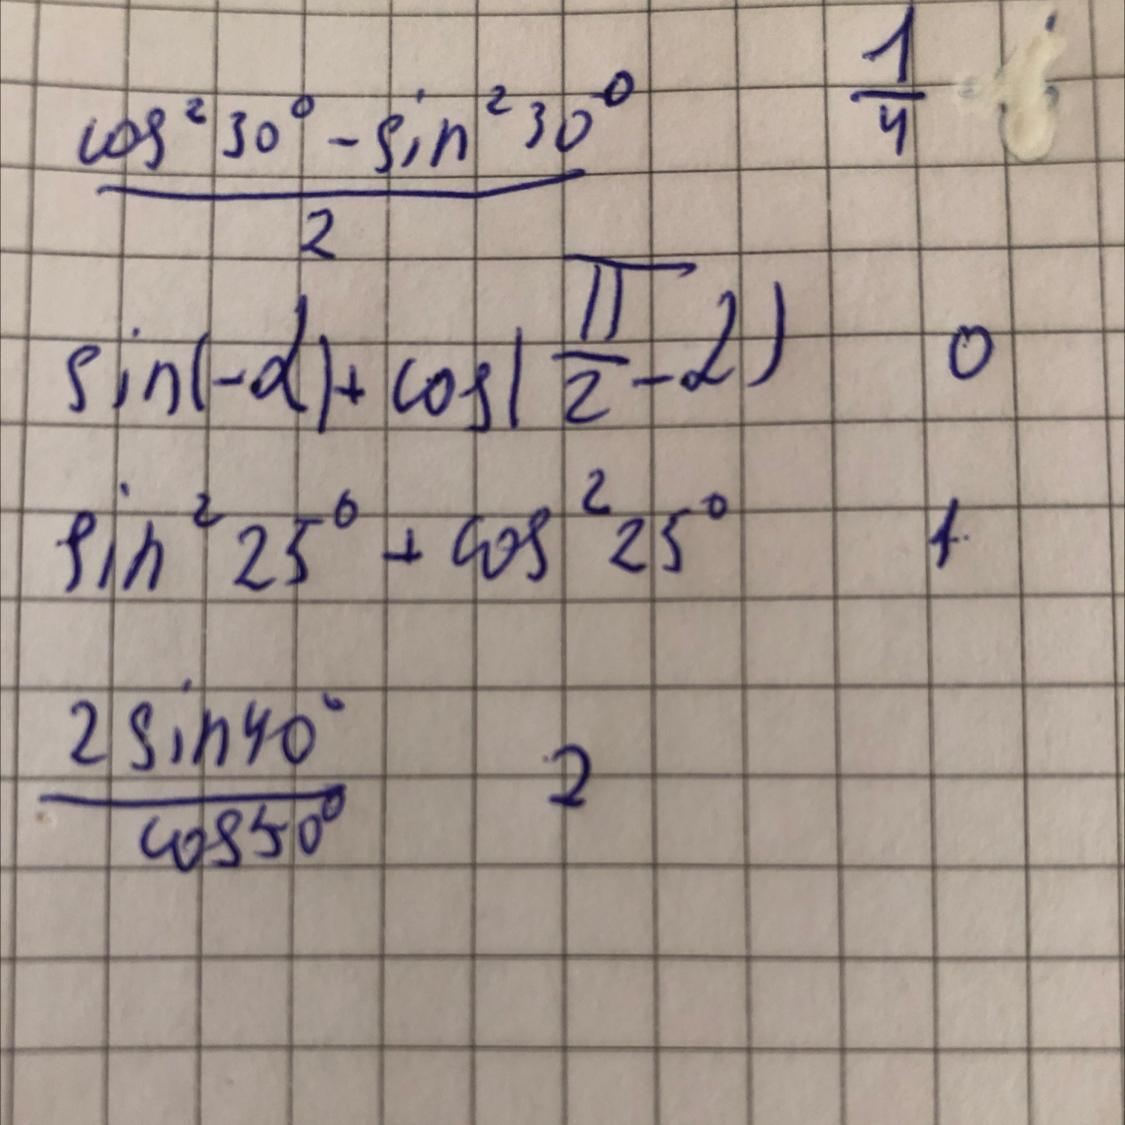 cos²30° - sin²30° / 2    1/4
sin(-α) + cos(π/2 - α)    0
sin²25° + cos²25°    1
2 sin40° / cos50°    2